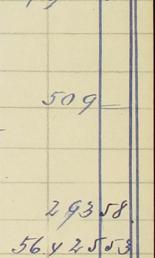 509 —
29358.
5642553